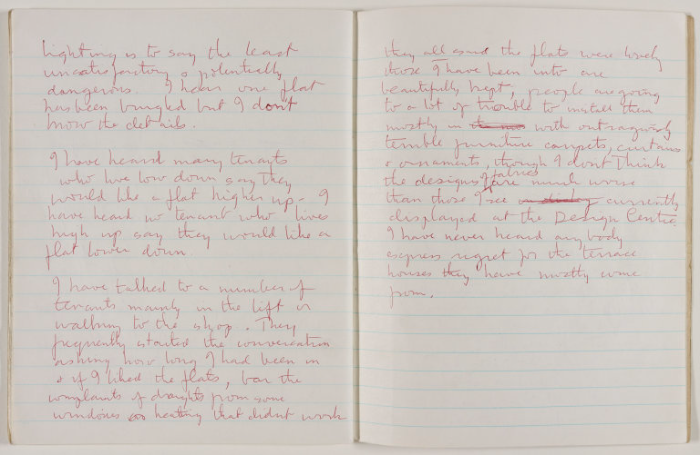 lighting is to say the least
unsatisfactory & potentially
dangerous. I hear one flat
has been burgled but I don't
know the details.
I have heard many tenants
who live low down say they
would like a flat higher up - I
have heard no tenant who lives
high up say they would like a
flat lower down
I have talked to a number of
tenants mainly in the lift or
walking to the shop. They
frequently started the conversation
asking how long I had been in
& if I liked the flats, bar the
complaints of draughts from some
windows & heating that didn't work
they all said the flats were lovely
those I have been into are
beautifully kept, people are going
to a lot of trouble to install them
mostly in with outrageously
terrible furniture carpets, curtains
& ornaments, though I dont think
the designs of fabrics are much worse
than those I see currently
displayed at the Design Centre
I have never heard any body
express regret for the terrace
houses they have mostly come
from.